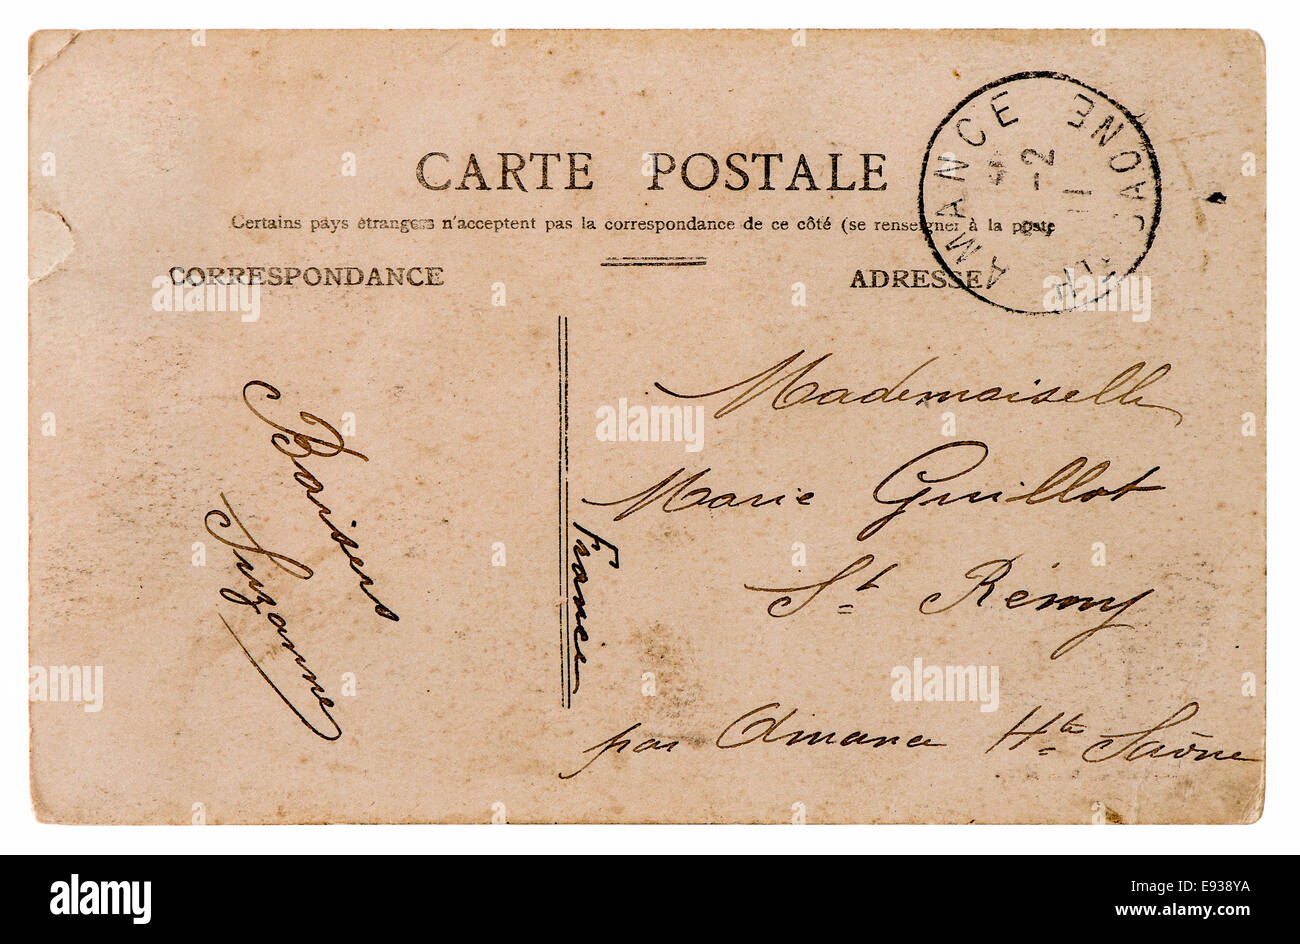 CARTE POSTALE
Certains pays étrangers n'acceptent pas la correspondance de ce côté (se renseigner à la poste
CORRESPONDANCE
ADRESSE
AMANCE
Hte SAONE
-2
11
Baisers
Suzanne
France
Mademoiselle
Marie Guillot
St. Rémy
par Amance Hte Saône
alamy
Image ID: E938YA
www.alamy.com